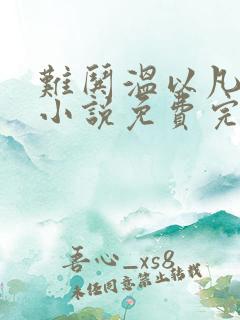 難鬨溫以凡
小說免費完
吾心_xs8
未经同意禁止转载